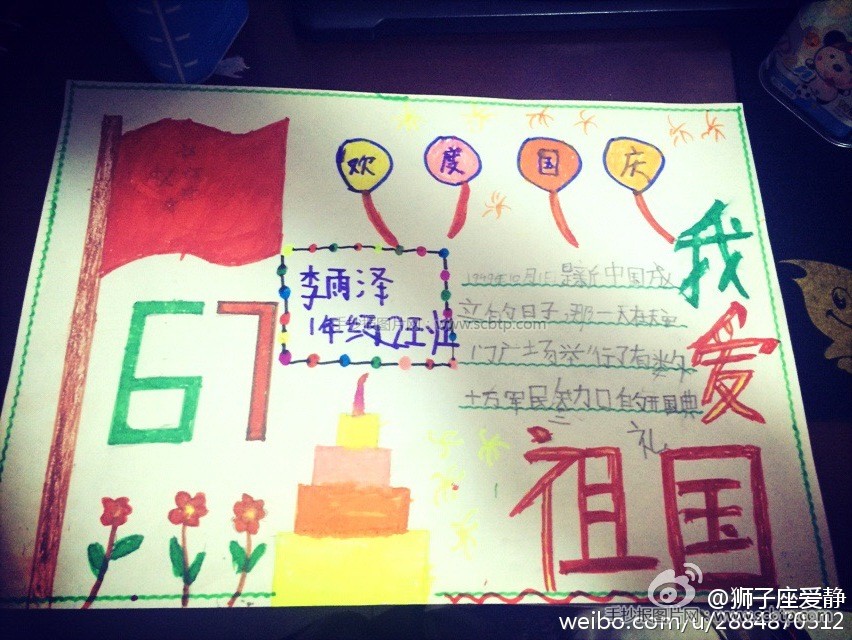 欢度国庆
67
李雨泽
1年级2班
1949年10月1日是新中国成
立的日子,那一天在天安
门广场举行了有数
十万军民参加的开国典
礼
我爱
祖国
手抄报图片网 www.scbtp.com
手抄报图片网 www.scbtp.com
@狮子座爱静
weibo.com/u/2884870312